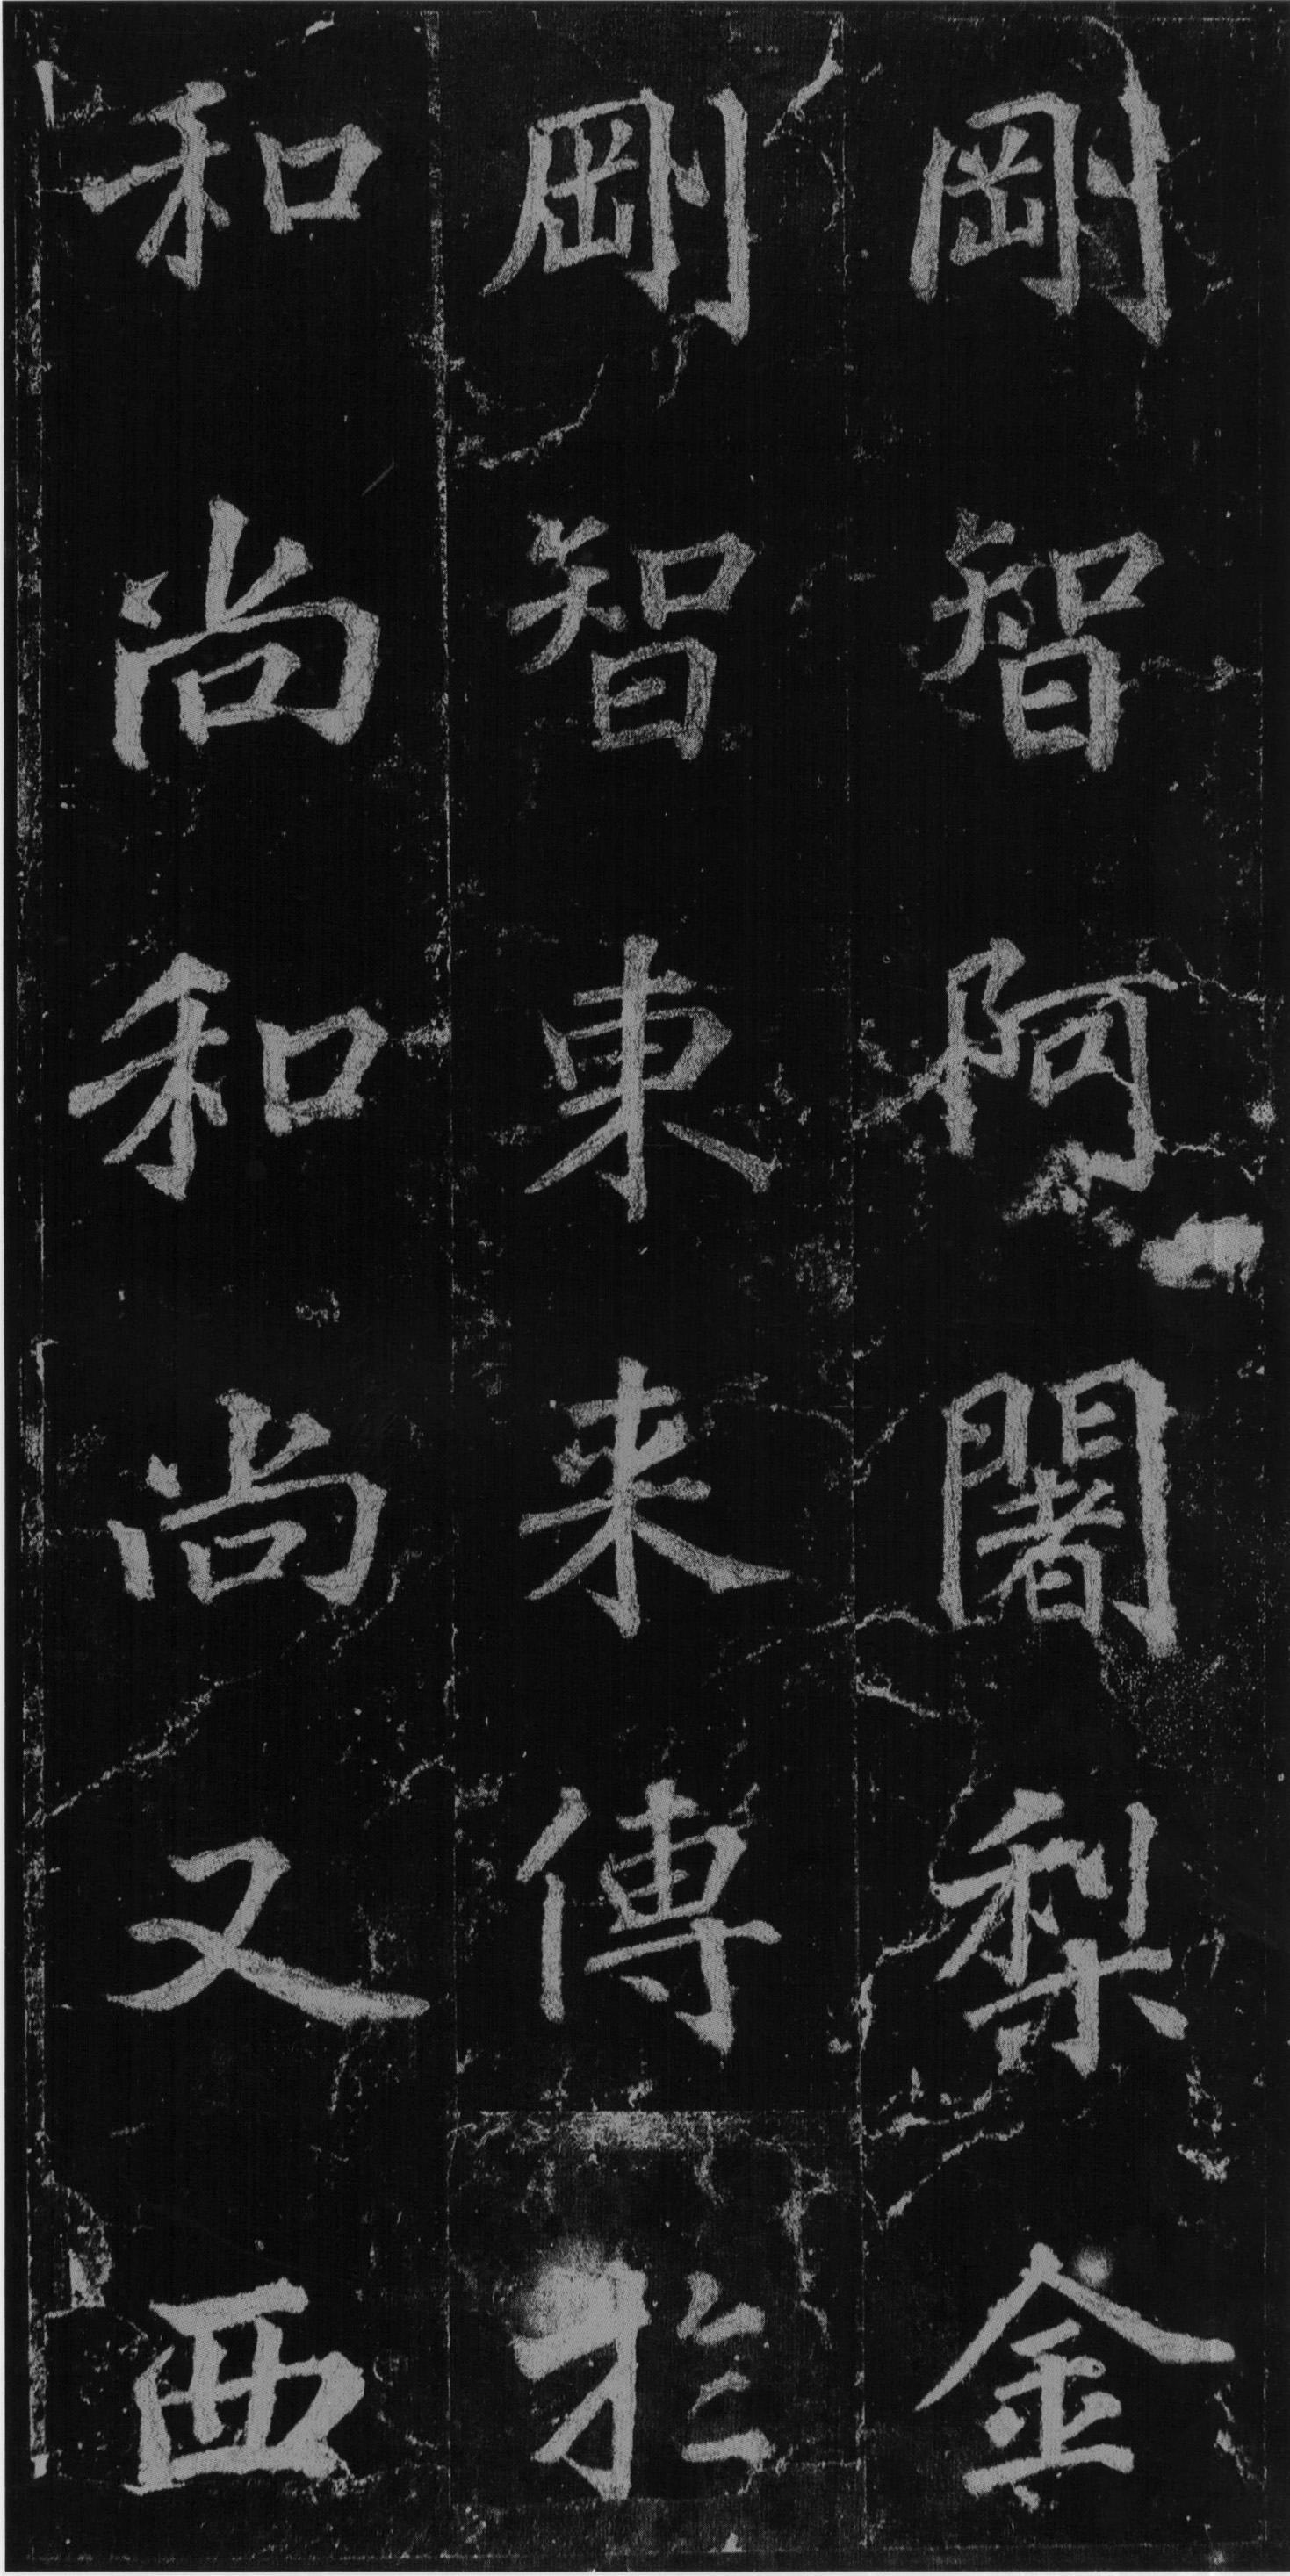 剛智阿闍梨金
剛智東来傳於
和尚和尚又西